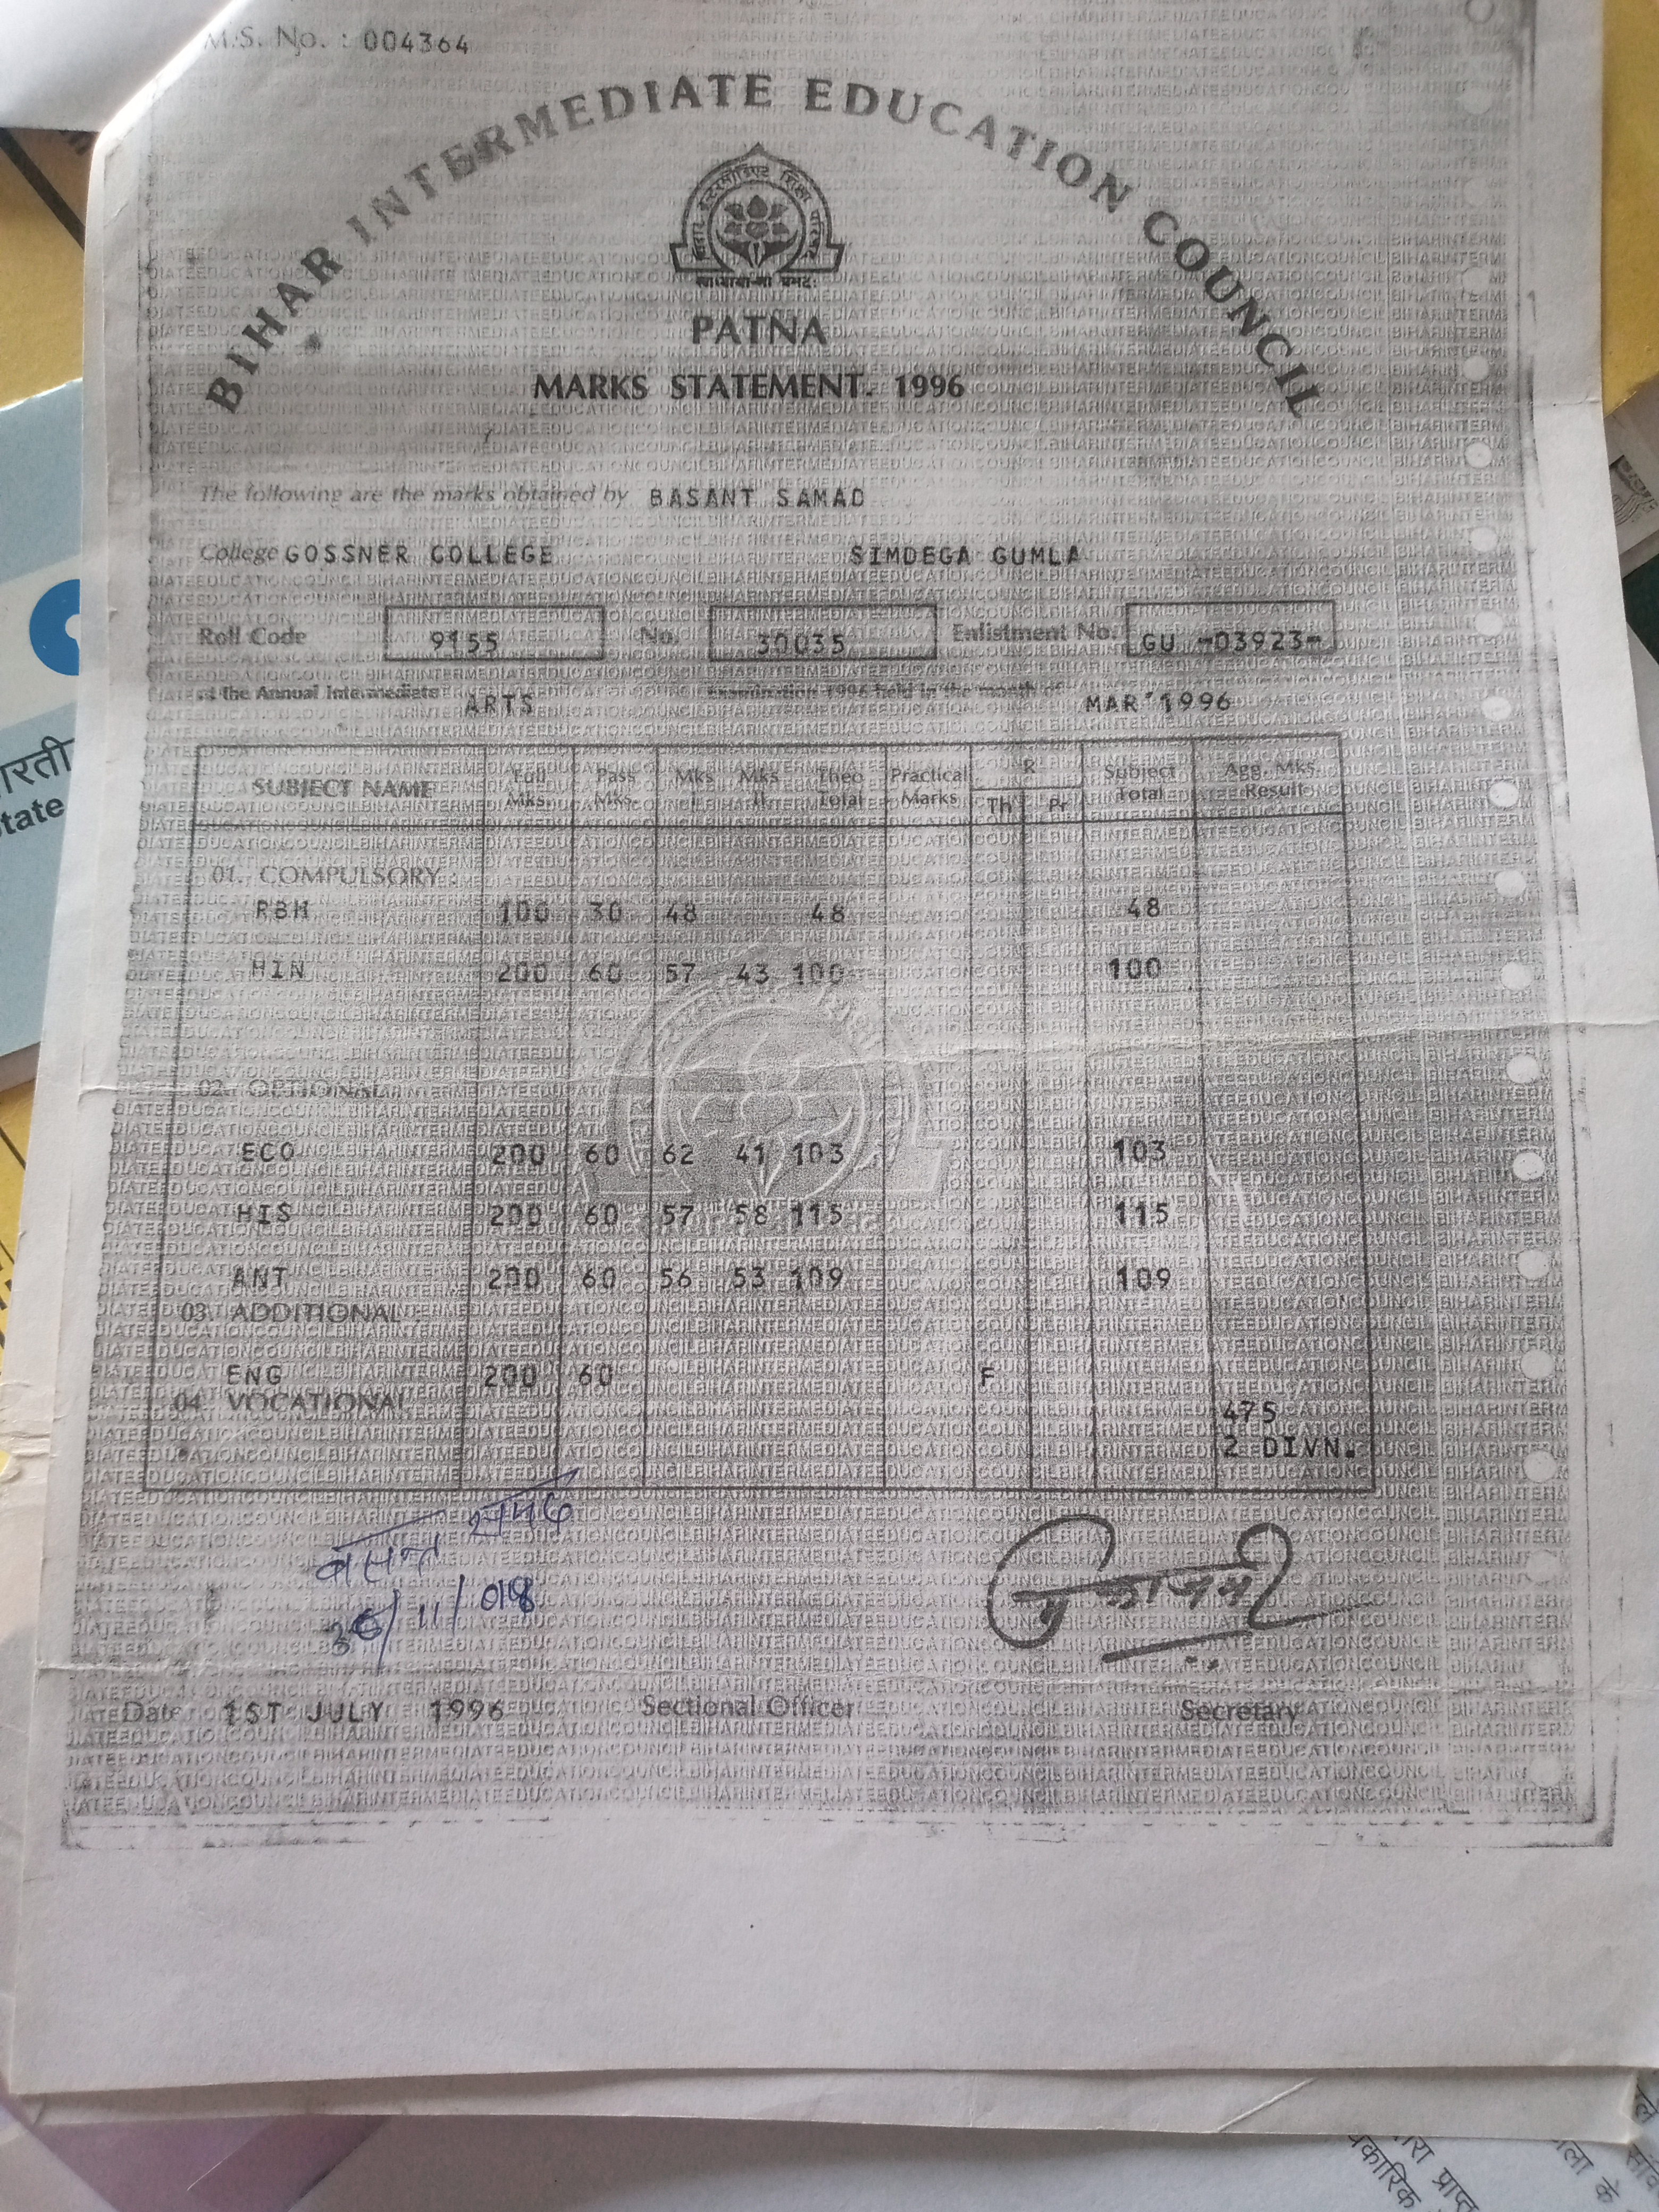 M.S. No. : 004364
BIHAR INTERMEDIATE EDUCATION COUNCIL
बिहार इन्टरमीडिएट शिक्षा परिषद
PATNA
MARKS STATEMENT. 1996
The following are the marks obtained by BASANT SAMAD
College GOSSNER COLLEGE SIMDEGA GUMLA
Roll Code 9155 No. 30035 Enlistment No. GU -03923-
at the Annual Intermediate ARTS Examination 1996 held in the month of MAR'1996
SUBJECT NAME Full Mks. Pass Mks. Mks I Mks II Theo Total Practical Marks R Th Pr Subject Total Agg. Mks. Result
01. COMPULSORY :
RBH 100 30 48 48 48
HIN 200 60 57 43 100 100
02. OPTIONAL
ECO 200 60 62 41 103 103
HIS 200 60 57 58 115 115
ANT 200 60 56 53 109 109
03. ADDITIONAL :
ENG 200 60 F
04. VOCATIONAL
475
2 DIVN.
बसन्त समद
Date 1ST JULY 1996 Sectional Officer Secretary